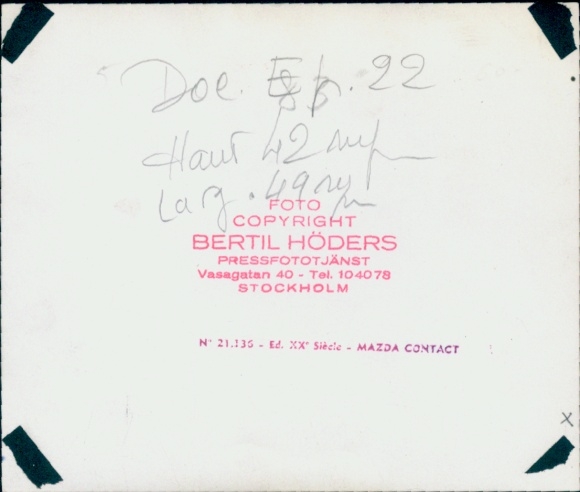 Doc. E p. 22
Haut 42 m/m
Larg. 49 m/m
FOTO
COPYRIGHT
BERTIL HÖDERS
PRESSFOTOTJÄNST
Vasagatan 40 - Tel. 104078
STOCKHOLM
N° 21.136 - Ed. XXe Siècle - MAZDA CONTACT
x